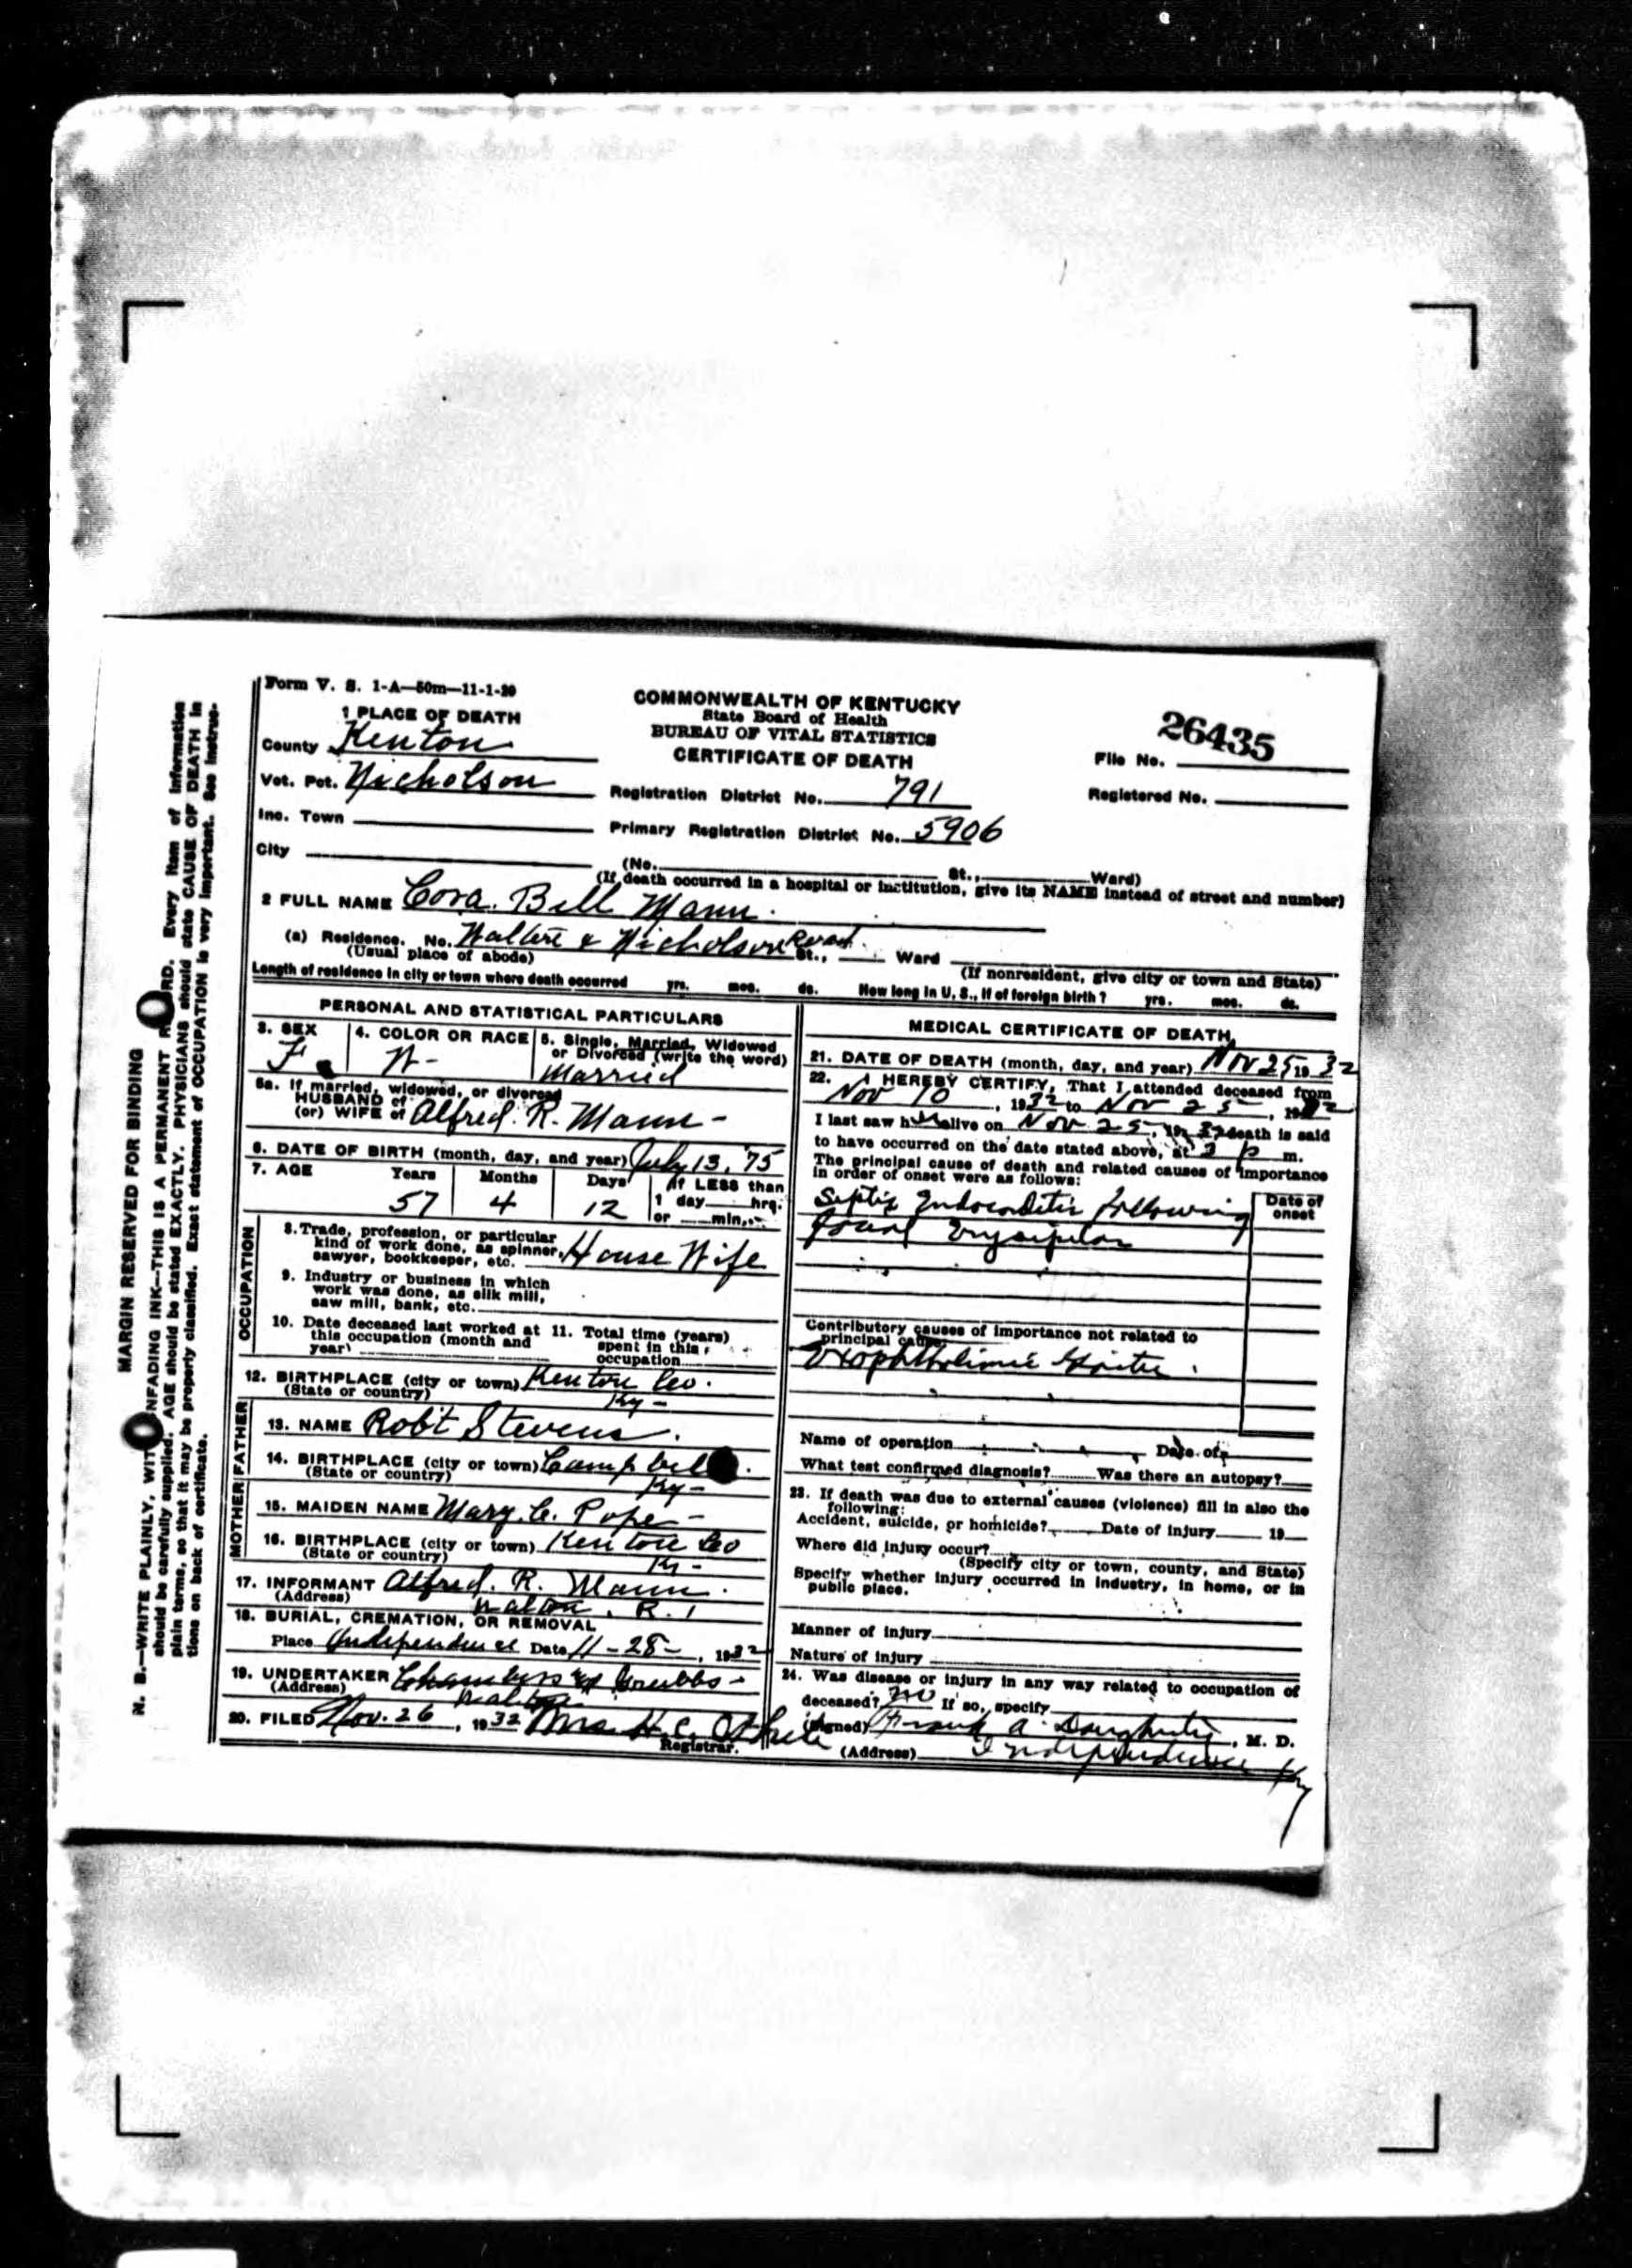 Form V. S. 1-A—50m—11-1-29
COMMONWEALTH OF KENTUCKY
State Board of Health
BUREAU OF VITAL STATISTICS
CERTIFICATE OF DEATH
26435
File No.
Registered No.
1 PLACE OF DEATH
County Kenton
Vot. Pct. Nicholson
Registration District No. 791
Inc. Town
Primary Registration District No. 5906
City
(No. St., Ward)
(If death occurred in a hospital or institution, give its NAME instead of street and number)
2 FULL NAME Cora. Bell Mann.
(a) Residence. No. & Nicholson Road. St., Ward
(Usual place of abode)
(If nonresident, give city or town and State)
Length of residence in city or town where death occurred yrs. mos. ds. How long in U. S., if of foreign birth? yrs. mos. ds.
PERSONAL AND STATISTICAL PARTICULARS
3. SEX
F.
4. COLOR OR RACE
W-
5. Single, Married, Widowed
or Divorced (write the word)
Married
5a. If married, widowed, or divorced
HUSBAND of
(or) WIFE of Alfred. R. Mann-
6. DATE OF BIRTH (month, day, and year) July 13, 75
7. AGE Years Months Days If LESS than
57 4 12 1 day hrs.
or min.
OCCUPATION
8. Trade, profession, or particular
kind of work done, as spinner,
sawyer, bookkeeper, etc. House Wife
9. Industry or business in which
work was done, as silk mill,
saw mill, bank, etc.
10. Date deceased last worked at
this occupation (month and
year)
11. Total time (years)
spent in this
occupation
12. BIRTHPLACE (city or town) Kenton Co.
(State or country) Ky-
FATHER
13. NAME Rob't Stevens.
14. BIRTHPLACE (city or town) Campbell.
(State or country) Ky-
MOTHER
15. MAIDEN NAME Mary. C. Pope-
16. BIRTHPLACE (city or town) Kenton Co
(State or country) Ky-
17. INFORMANT Alfred. R. Mann.
(Address) Walton, R. 1
18. BURIAL, CREMATION, OR REMOVAL
Place Independence Date 11-28-, 1932
19. UNDERTAKER Chambers & Grubbs-
(Address) Walton
20. FILED Nov. 26, 1932 Mrs H. C.
Registrar.
MEDICAL CERTIFICATE OF DEATH
21. DATE OF DEATH (month, day, and year) Nov 25 1932
22. I HEREBY CERTIFY, That I attended deceased from
Nov 10, 1932 to Nov 25, 1932
I last saw her alive on Nov 25, 1932 death is said
to have occurred on the date stated above, at 3 p m.
The principal cause of death and related causes of importance
in order of onset were as follows:
Date of
onset
Septic Endocarditis following
facial Erysipelas
Contributory causes of importance not related to
principal cause:
Exophthalmic Goitre.
Name of operation Date of
What test confirmed diagnosis? Was there an autopsy?
23. If death was due to external causes (violence) fill in also the
following:
Accident, suicide, or homicide? Date of injury 19
Where did injury occur?
(Specify city or town, county, and State)
Specify whether injury occurred in industry, in home, or in
public place.
Manner of injury
Nature of injury
24. Was disease or injury in any way related to occupation of
deceased? no If so, specify
(Signed) Frank A. Daugherty, M. D.
(Address) Independence Ky
MARGIN RESERVED FOR BINDING
N. B.—WRITE PLAINLY, WITH UNFADING INK—THIS IS A PERMANENT RECORD. Every item of information
should be carefully supplied. AGE should be stated EXACTLY. PHYSICIANS should state CAUSE OF DEATH in
plain terms, so that it may be properly classified. Exact statement of OCCUPATION is very important. See instruc-
tions on back of certificate.